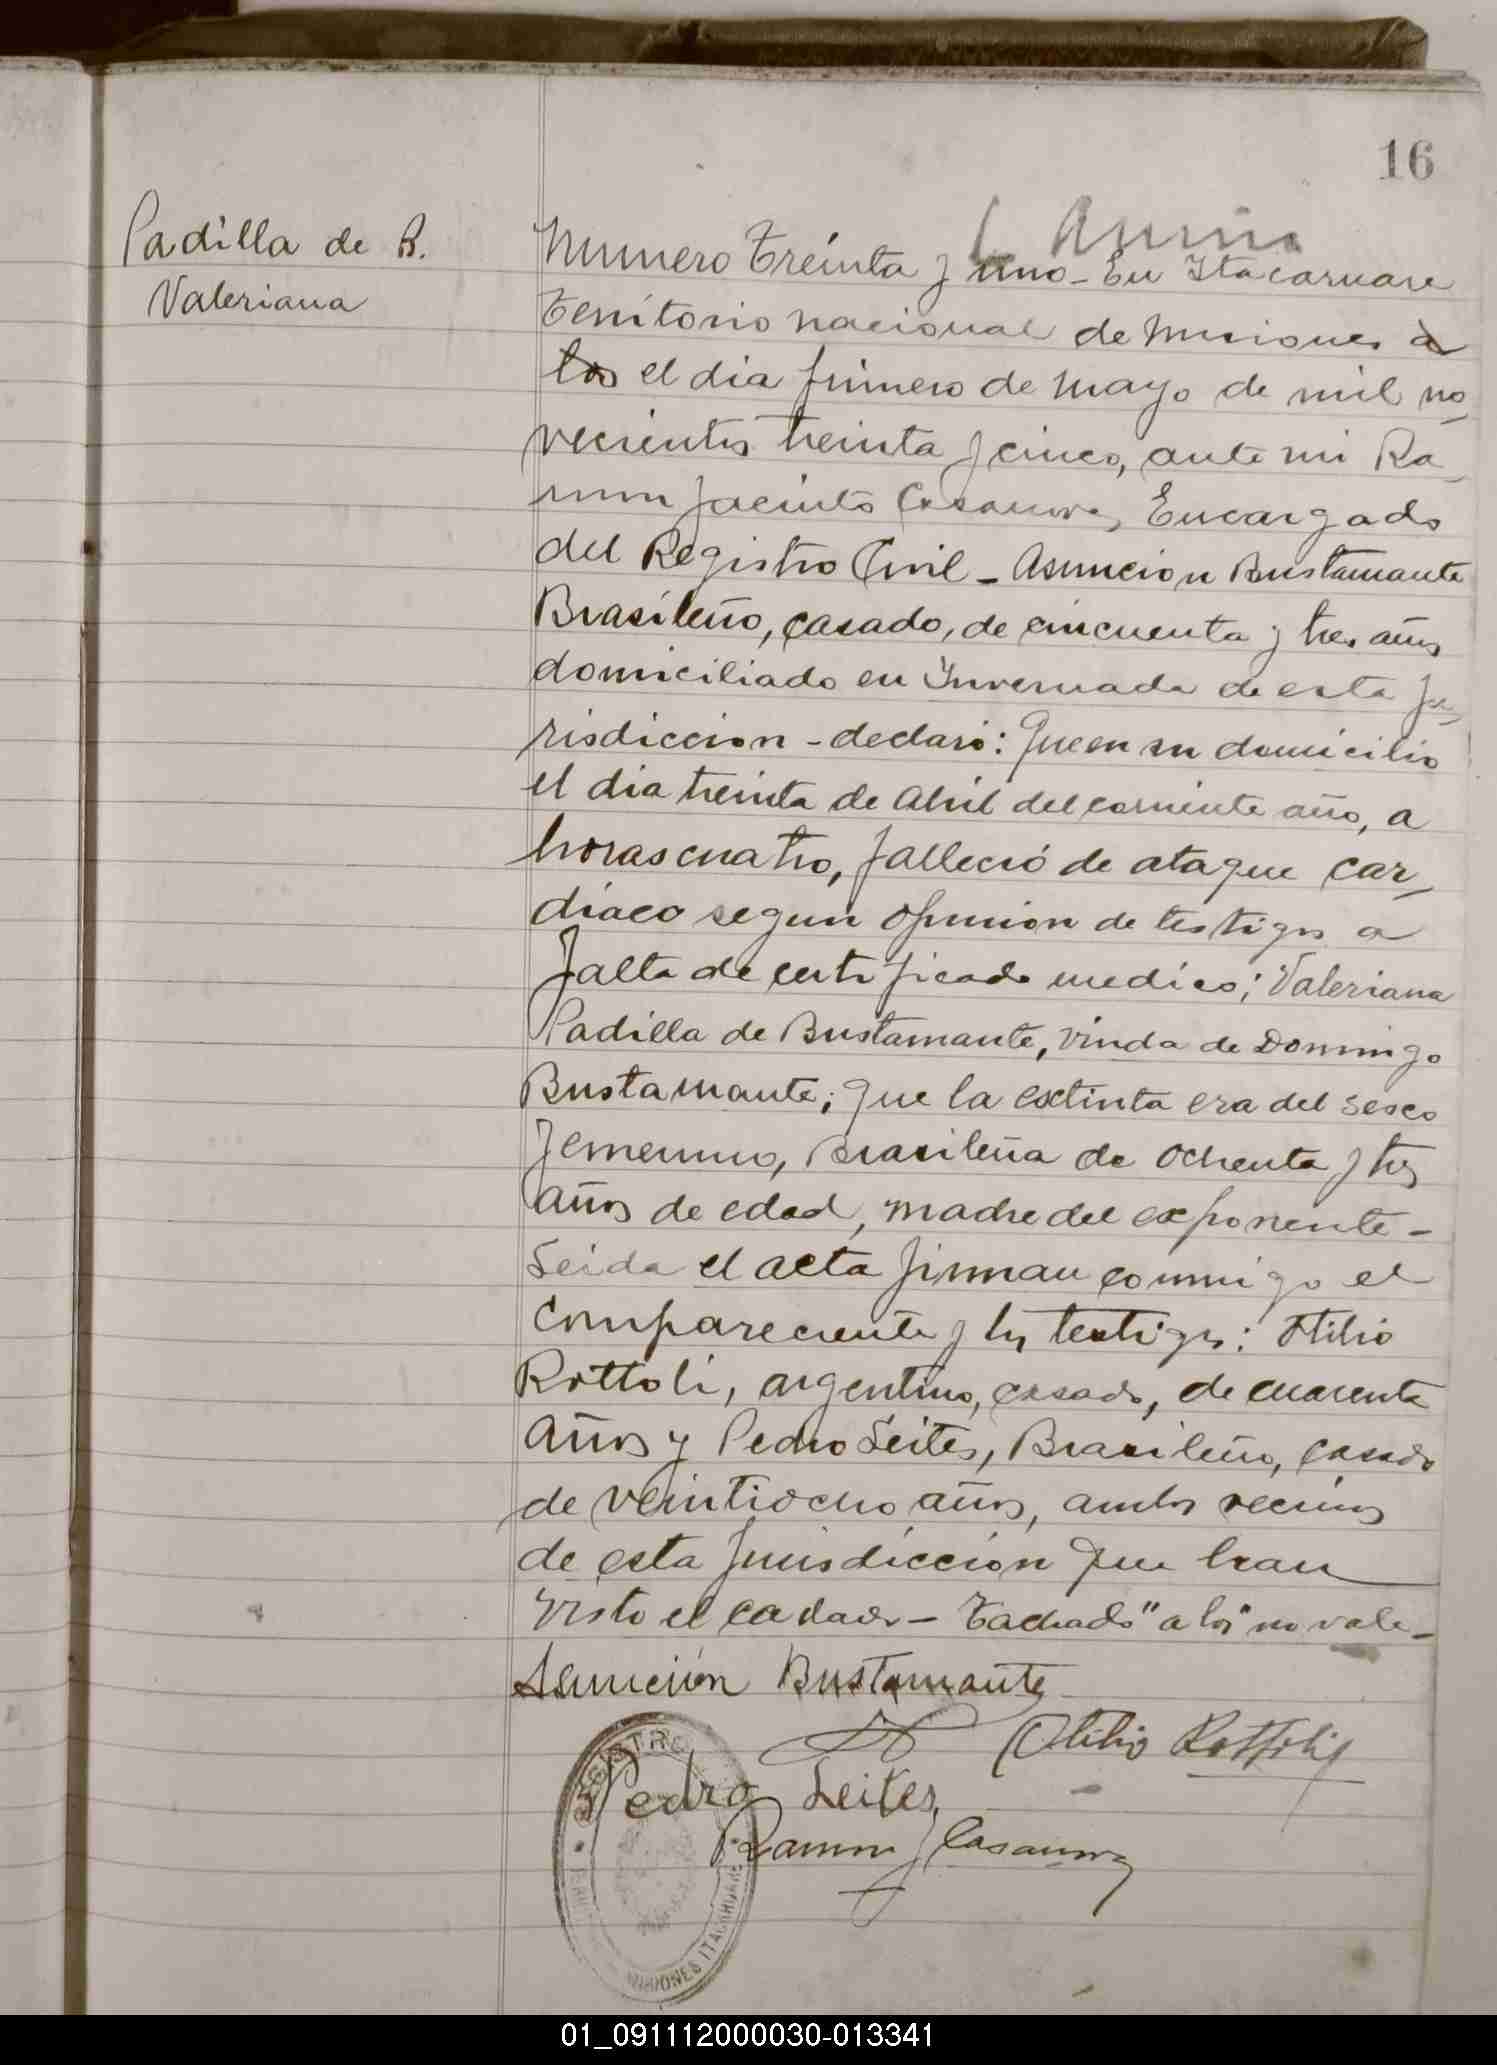 16
Padilla de B.
Valeriana
Numero Treinta y uno - En Itacaruare
Territorio nacional de Misiones a
los el dia primero de Mayo de mil no_
vecientos treinta y cinco, ante mi Ra_
mon Jacinto Casanova, Encargado
del Registro Civil - Asuncion Bustamante
Brasileño, casado, de cincuenta y tres años
domiciliado en Invernada de esta ju_
risdiccion - declaró: Que en su domicilio
el dia treinta de Abril del corriente año, a
horas cuatro, falleció de ataque car_
díaco segun opinion de testigos a
falta de certificado medico; Valeriana
Padilla de Bustamante, viuda de Domingo
Bustamante; que la extinta era del sexo
femenino, Brasileña de ochenta y tres
años de edad, madre del exponente -
Leida el acta firman conmigo el
compareciente y los testigos: Otilio
Rottoli, argentino, casado, de cuarenta
años y Pedro Leites, Brasileño, casado
de veintiocho años, ambos vecinos
de esta jurisdicción que han
visto el cadaver - Tachado "a los" no vale -
Asunción Bustamante
Otilio Rottoli
Pedro Leites
Ramon J Casanova
REGISTRO
MISIONES ITACARUARE
01_091112000030-013341